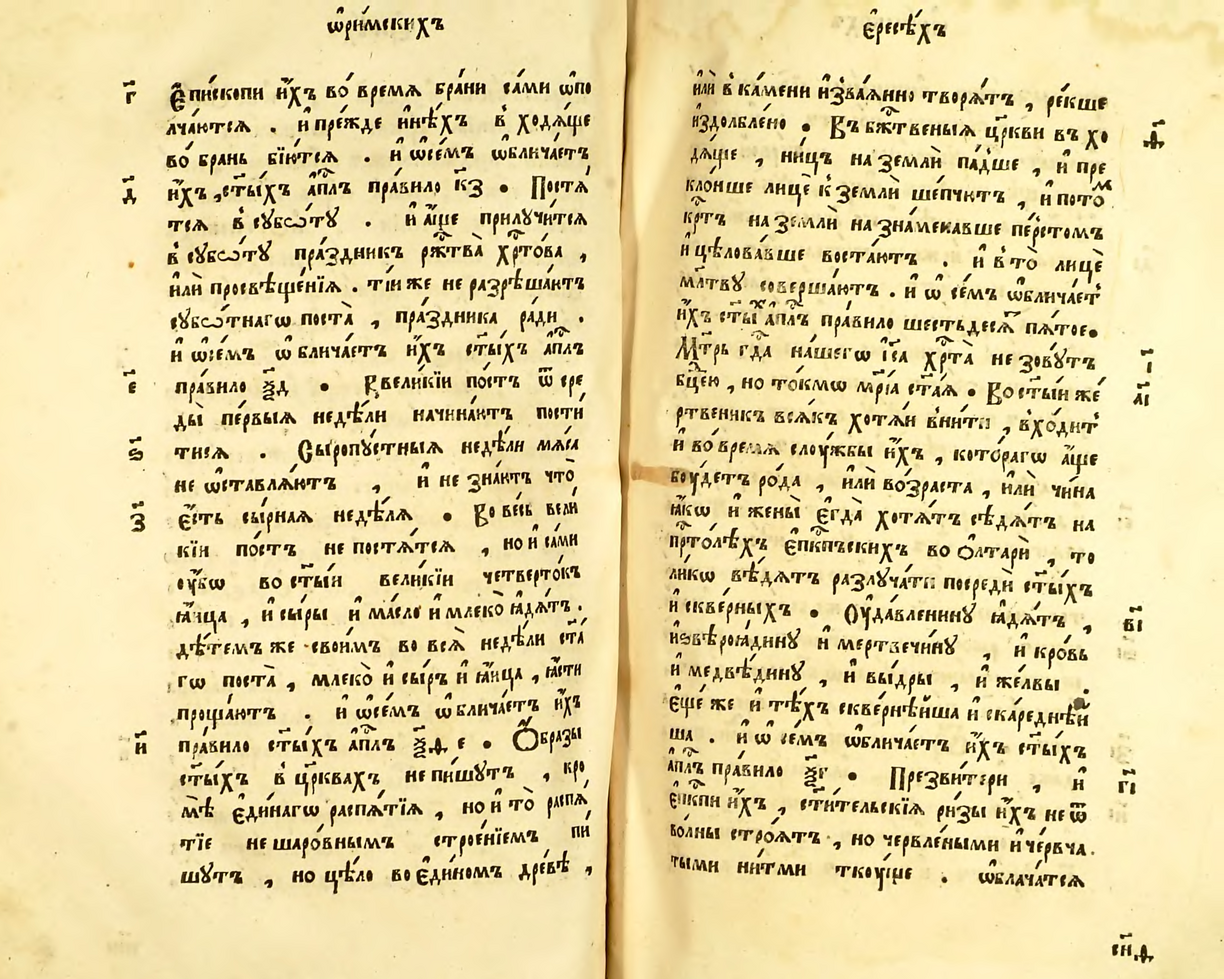 ѡ҆ри́мскихъ
г҃ Є҆пи́скопи и҆́хъ во вре́мѧ бра́ни са́ми ѡ҆по
лча́ютсѧ . и҆ пре́жде и҆нѣ́хъ в ходѧ́ще
во бра́нь бїю́тсѧ . и҆ ѡ҆се́мъ ѡ҆блича́етъ
д҃ и҆́хъ , ст҃ы́хъ а҆пⷭ҇лъ пра́вило к҃з . Постѧ́
тсѧ в сꙋббѡ́тꙋ . и҆ а҆́ще прилꙋчи́тсѧ
в сꙋббѡ́тꙋ пра́здникъ ржⷭ҇тва̀ хрⷭ҇то́ва ,
и҆лѝ просвѣще́нїѧ . ті́и же не разрѣша́ютъ
сꙋббѡ́тнагѡ поста̀ , пра́здника ра́ди .
и҆ ѡ҆се́мъ ѡ҆блича́етъ и҆́хъ ст҃ы́хъ а҆пⷭ҇лъ
є҃ пра́вило ѯ҃д . Ввели́кїи по́стъ ѿ сре
ды̀ пе́рвыѧ недѣ́ли начина́ютъ пости́
ѕ҃ тисѧ . Сыропꙋ́стныѧ недѣ́ли мѧ́са
не ѡ҆ставлѧ́ютъ , и҆ не зна́ютъ что̀
з҃ є҆́сть сы́рнаѧ недѣ́лѧ . Во ве́сь вели́
кїи по́стъ не постѧ́тсѧ , но и҆ са́ми
ᲂу҆́бѡ во ст҃ы́и вели́кїи четверто́къ
ꙗ҆́ица , и҆ сы́ры и҆ ма́сло и҆ млеко̀ ꙗ҆дѧ́тъ .
дѣ́темъ же свои́мъ во всѧ̀ недѣ́ли ст҃а́
гѡ поста̀ , млеко̀ и҆ сы́ръ и҆ ꙗ҆́ица , ꙗ҆́сти
проща́ютъ . и҆ ѡ҆се́мъ ѡ҆блича́етъ и҆́хъ
и҃ пра́вило ст҃ы́хъ а҆пⷭ҇лъ ѯ҃ѳ е . Ѻ҆́бразы
ст҃ы́хъ в цр҃квахъ не пи́шꙋтъ , кро
мѣ̀ є҆ди́нагѡ распѧ́тїѧ , но и҆ то̀ распѧ́
тїе не шаро́внымъ строе́нїемъ пи́
шꙋтъ , но цѣ́ло во є҆ди́номъ дре́вѣ ,
є҆́ресѣхъ
и҆лѝ в ка́мени и҆зва́ѧнно творѧ́тъ , ре́кше
и҆здолбле́но . Въ бжⷭ҇твеныѧ цр҃кви въ хо ѳ҃
дѧ́ще , ни́цъ на землѝ па́дше , и҆ пре
кло́ише лицѐ к землѝ ше́пчютъ , и҆ пото́ᷨ
крⷭ҇тъ на землѝ назнамена́вше пе́рстомъ
и҆ цѣлова́вше востаю́тъ . и҆ в то̀ лицѐ
мл҃твꙋ соверша́ютъ . и҆ ѡ҆ се́мъ ѡ҆блича́етъ
и҆́хъ ст҃ы́ⷯ а҆пⷭ҇лъ пра́вило шестьдесѧ́т пѧ́тое .
Мт҃рь гдⷭ҇а на́шегѡ і҆с҃а хрⷭ҇та̀ не зовꙋ́тъ і҃
бц҃ею , но то́кмѡ мр҃і́а ст҃а́ѧ . Во ст҃ы́и же́ а҃і
ртвеникъ всѧ́къ хотѧ́и вни́ти , вхо́дитъ
и҆ во вре́мѧ слоу́жбы и҆́хъ , кото́рагѡ а҆́ще
боу́детъ ро́да , и҆лѝ во́зраста , и҆лѝ чи́на
ꙗ҆́кѡ и҆ жены̀ є҆гда̀ хотѧ́тъ сѣдѧ́тъ на
прⷭ҇то́лѣхъ є҆пⷭ҇кпъскихъ во ѻ҆лтарѝ , то
ли́кѡ вѣ́дѧтъ разлꙋча́ти посредѝ ст҃ы́хъ
и҆ скве́рныхъ . Оу҆да́вленинꙋ ꙗ҆дѧ́тъ , в҃і
и҆ ѕвѣроѧ́динꙋ и҆ мертвечи́нꙋ , и҆ кро́вь
и҆ медвѣ́динꙋ , и҆ вы́дры , и҆ же́лвы .
є҆ще́ же и҆ тѣ́хъ скве́рнѣиша и҆ скаре́днѣи
ша . и҆ ѡ҆ се́мъ ѡ҆блича́етъ и҆́хъ ст҃ы́хъ
а҆пⷭ҇лъ пра́вило ѯ҃г . Презви́тери , и҆ г҃і
є҆пⷭ҇кпи и҆́хъ , ст҃и́тельскїѧ ри́зы и҆́хъ не ѿ
во́лны стро́ѧтъ , но червле́ными и҆ че́рвча
тыми ни́тми ткоу́ще . ѡ҆блача́тсѧ
сн҃ѳ